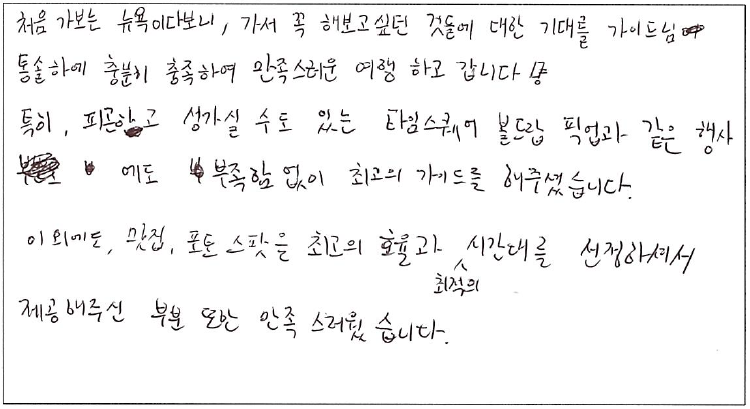 처음 가보는 뉴욕이다보니, 가서 꼭 해보고싶던 것들에 대한 기대를 가이드님
통솔하에 충분히 충족하여 만족스러운 여행 하고 갑니다
특히, 피곤하고 성가실 수도 있는 타임스퀘어 볼드랍 픽업과 같은 행사
에도 부족함 없이 최고의 가이드를 해주셨습니다.
이외에도, 맛집, 포토스팟은 최고의 효율과 최적의 시간대를 선정하셔서
제공해주신 부분 또한 만족스러웠습니다.